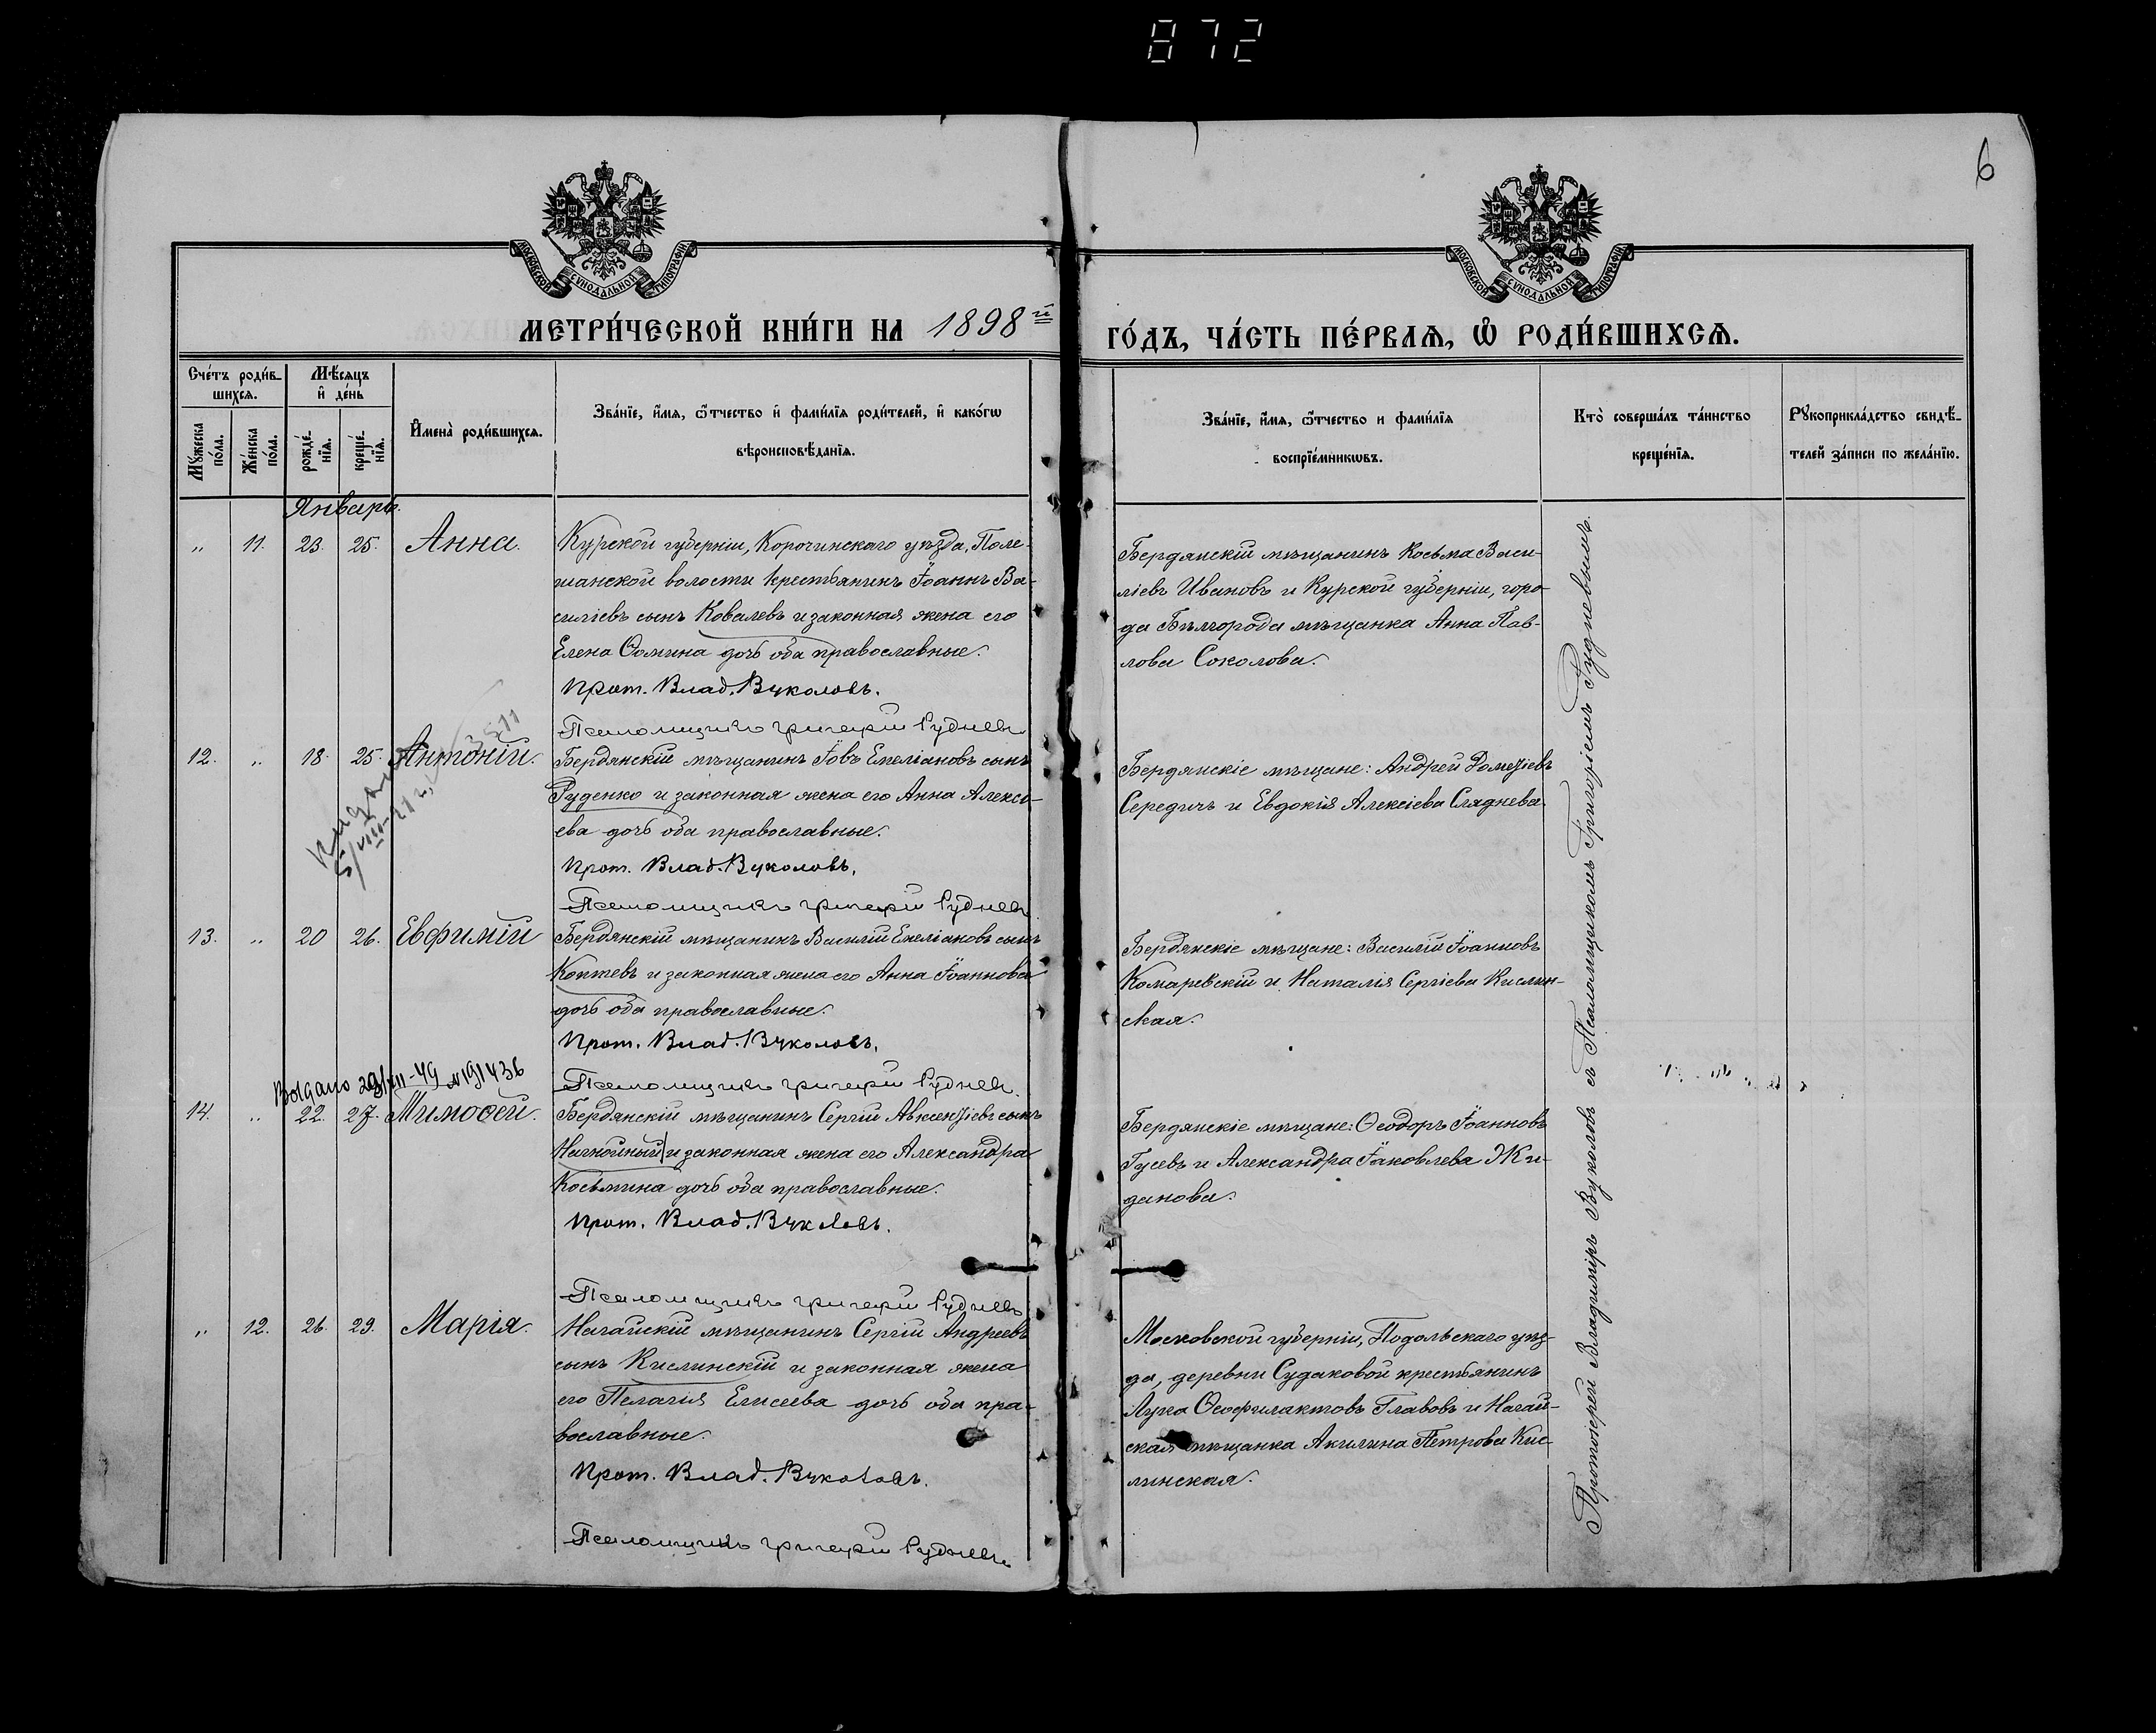 872
6
МОСКОВСКОЙ СѴНОДАЛЬНОЙ ТИПОГРАФІИ
МОСКОВСКОЙ СѴНОДАЛЬНОЙ ТИПОГРАФІИ
МЕТРИ́ЧЕСКОЙ КНИ́ГИ НА 1898й ГО́ДЪ, ЧА́СТЬ ПЕ́РВАѦ, Ѡ҆ РОДИ́ВШИХСѦ.
Сче́тъ роди́в-
шихсѧ.
Мѣ́сѧцъ
и҆ де́нь
Мꙋ́жеска
по́ла.
Же́нска
по́ла.
рожде́-
нїѧ.
креще́-
нїѧ.
И҆мена̀ роди́вшихсѧ.
Зва́нїе, и҆́мѧ, ѻ҆́тчество и҆ фами́лїѧ роди́телей, и҆ како́гѡ
вѣроисповѣ́данїѧ.
Зва́нїе, и҆́мѧ, ѻ҆́тчество и фами́лїѧ
воспрїе́мникѡвъ.
Кто̀ соверша́лъ та́инство
креще́нїѧ.
Рꙋкоприкла́дство свидѣ́-
телей за́писи по жела́нїю.
Январь.
„ 11. 23. 25. Анна.
Курской губерніи, Корочинскаго уѣзда, Поле-
шанской волости крестьянинъ Іоаннъ Ва-
силіевъ сынъ Ковалевъ и законная жена его
Елена Ѳомина дочь оба православные.
Прот. Влад. Вуколовъ.
Псаломщикъ Григорій Рудневъ
Бердянскій мѣщанинъ Косьма Васи-
ліевъ Ивановъ и Курской губерніи, горо-
да Бѣлгорода мѣщанка Анна Пав-
лова Соколова.
12. „ 18. 25. Антоній.
Бердянскій мѣщанинъ Іовъ Емеліановъ сынъ
Руденко и законная жена его Анна Алексі-
ева дочь оба православные.
Прот. Влад. Вуколовъ.
Псаломщикъ Григорій Рудневъ
Бердянскіе мѣщане: Андрей Дометіевъ
Середичъ и Евдокія Алексіева Сляднева.
13. „ 20 26. Евфимій
Бердянскій мѣщанинъ Василій Емеліановъ сынъ
Коптевъ и законная жена его Анна Іоаннова
дочь оба православные.
Прот. Влад. Вуколовъ.
Псаломщикъ Григорій Рудневъ.
Бердянскіе мѣщане: Василій Іоанновъ
Комаревскій и Наталія Сергіева Кислин-
ская.
29/XII-49 №191436
14. „ 22. 27. Тимоѳей.
Бердянскій мѣщанинъ Сергій Авксентіевъ сынъ
Нагнойный и законная жена его Александра
Косьмина дочь оба православные.
Прот. Влад. Вуколовъ.
Псаломщикъ Григорій Рудневъ
Бердянскіе мѣщане: Ѳеодоръ Іоанновъ
Гусевъ и Александра Іаковлева Жи-
данова.
„ 12. 26. 29. Марія.
Ногайскій мѣщанинъ Сергій Андреевъ
сынъ Кислинскій и законная жена
его Пелагія Елисеева дочь оба пра-
вославные.
Прот. Влад. Вуколовъ.
Псаломщикъ Григорій Рудневъ
Московской губерніи, Подольскаго уѣз-
да, деревни Судаковой крестьянинъ
Лука Ѳеофилактовъ Главовъ и Ногай-
ская мѣщанка Акилина Петрова Кис-
линская.
Протоіерей Владиміръ Вуколовъ съ Псаломщикомъ Григоріемъ Рудневымъ.